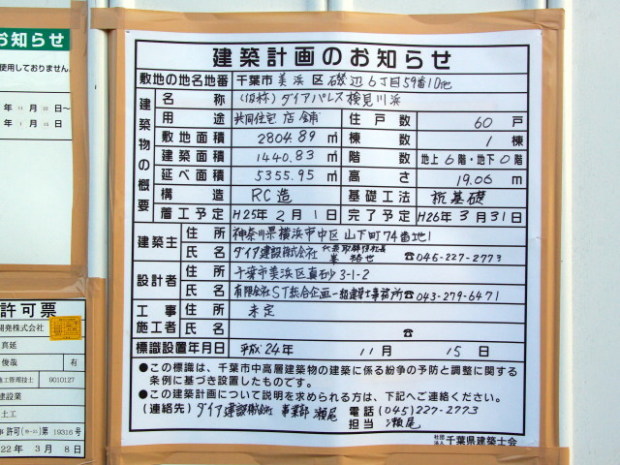 お知らせ
使用しておりません。
許可票
開発株式会社
真延
俊哉 有
9010127
建設業
土工
第19316号
22年3月8日
建築計画のお知らせ
敷地の地名地番 千葉市美浜区磯辺6丁目59番10他
建築物の概要
名称 (仮称)ダイアパレス検見川浜
用途 共同住宅 店舗 住戸数 60戸
敷地面積 2804.89㎡ 棟数 1棟
建築面積 1440.83㎡ 階数 地上6階・地下0階
延べ面積 5355.95㎡ 高さ 19.06m
構造 RC造 基礎工法 杭基礎
着工予定 H25年2月1日 完了予定 H26年3月31日
建築主 住所 神奈川県横浜市中区山下町74番地1
氏名 ダイア建設株式会社 代表取締役社長 ☎045-227-2773
設計者 住所 千葉市美浜区真砂3-1-2
氏名 有限会社ST総合企画一級建築士事務所 ☎043-279-6471
工事施工者 住所 未定
氏名 ☎
標識設置年月日 平成24年 11月 15日
●この標識は、千葉市中高層建築物の建築に係る紛争の予防と調整に関する
条例に基づき設置したものです。
●この建築計画について説明を求められる方は、下記へご連絡ください。
(連絡先) ダイア建設株式会社 事業部 瀬尾 電話(045)227-2773
担当 瀬尾
社団法人 千葉県建築士会